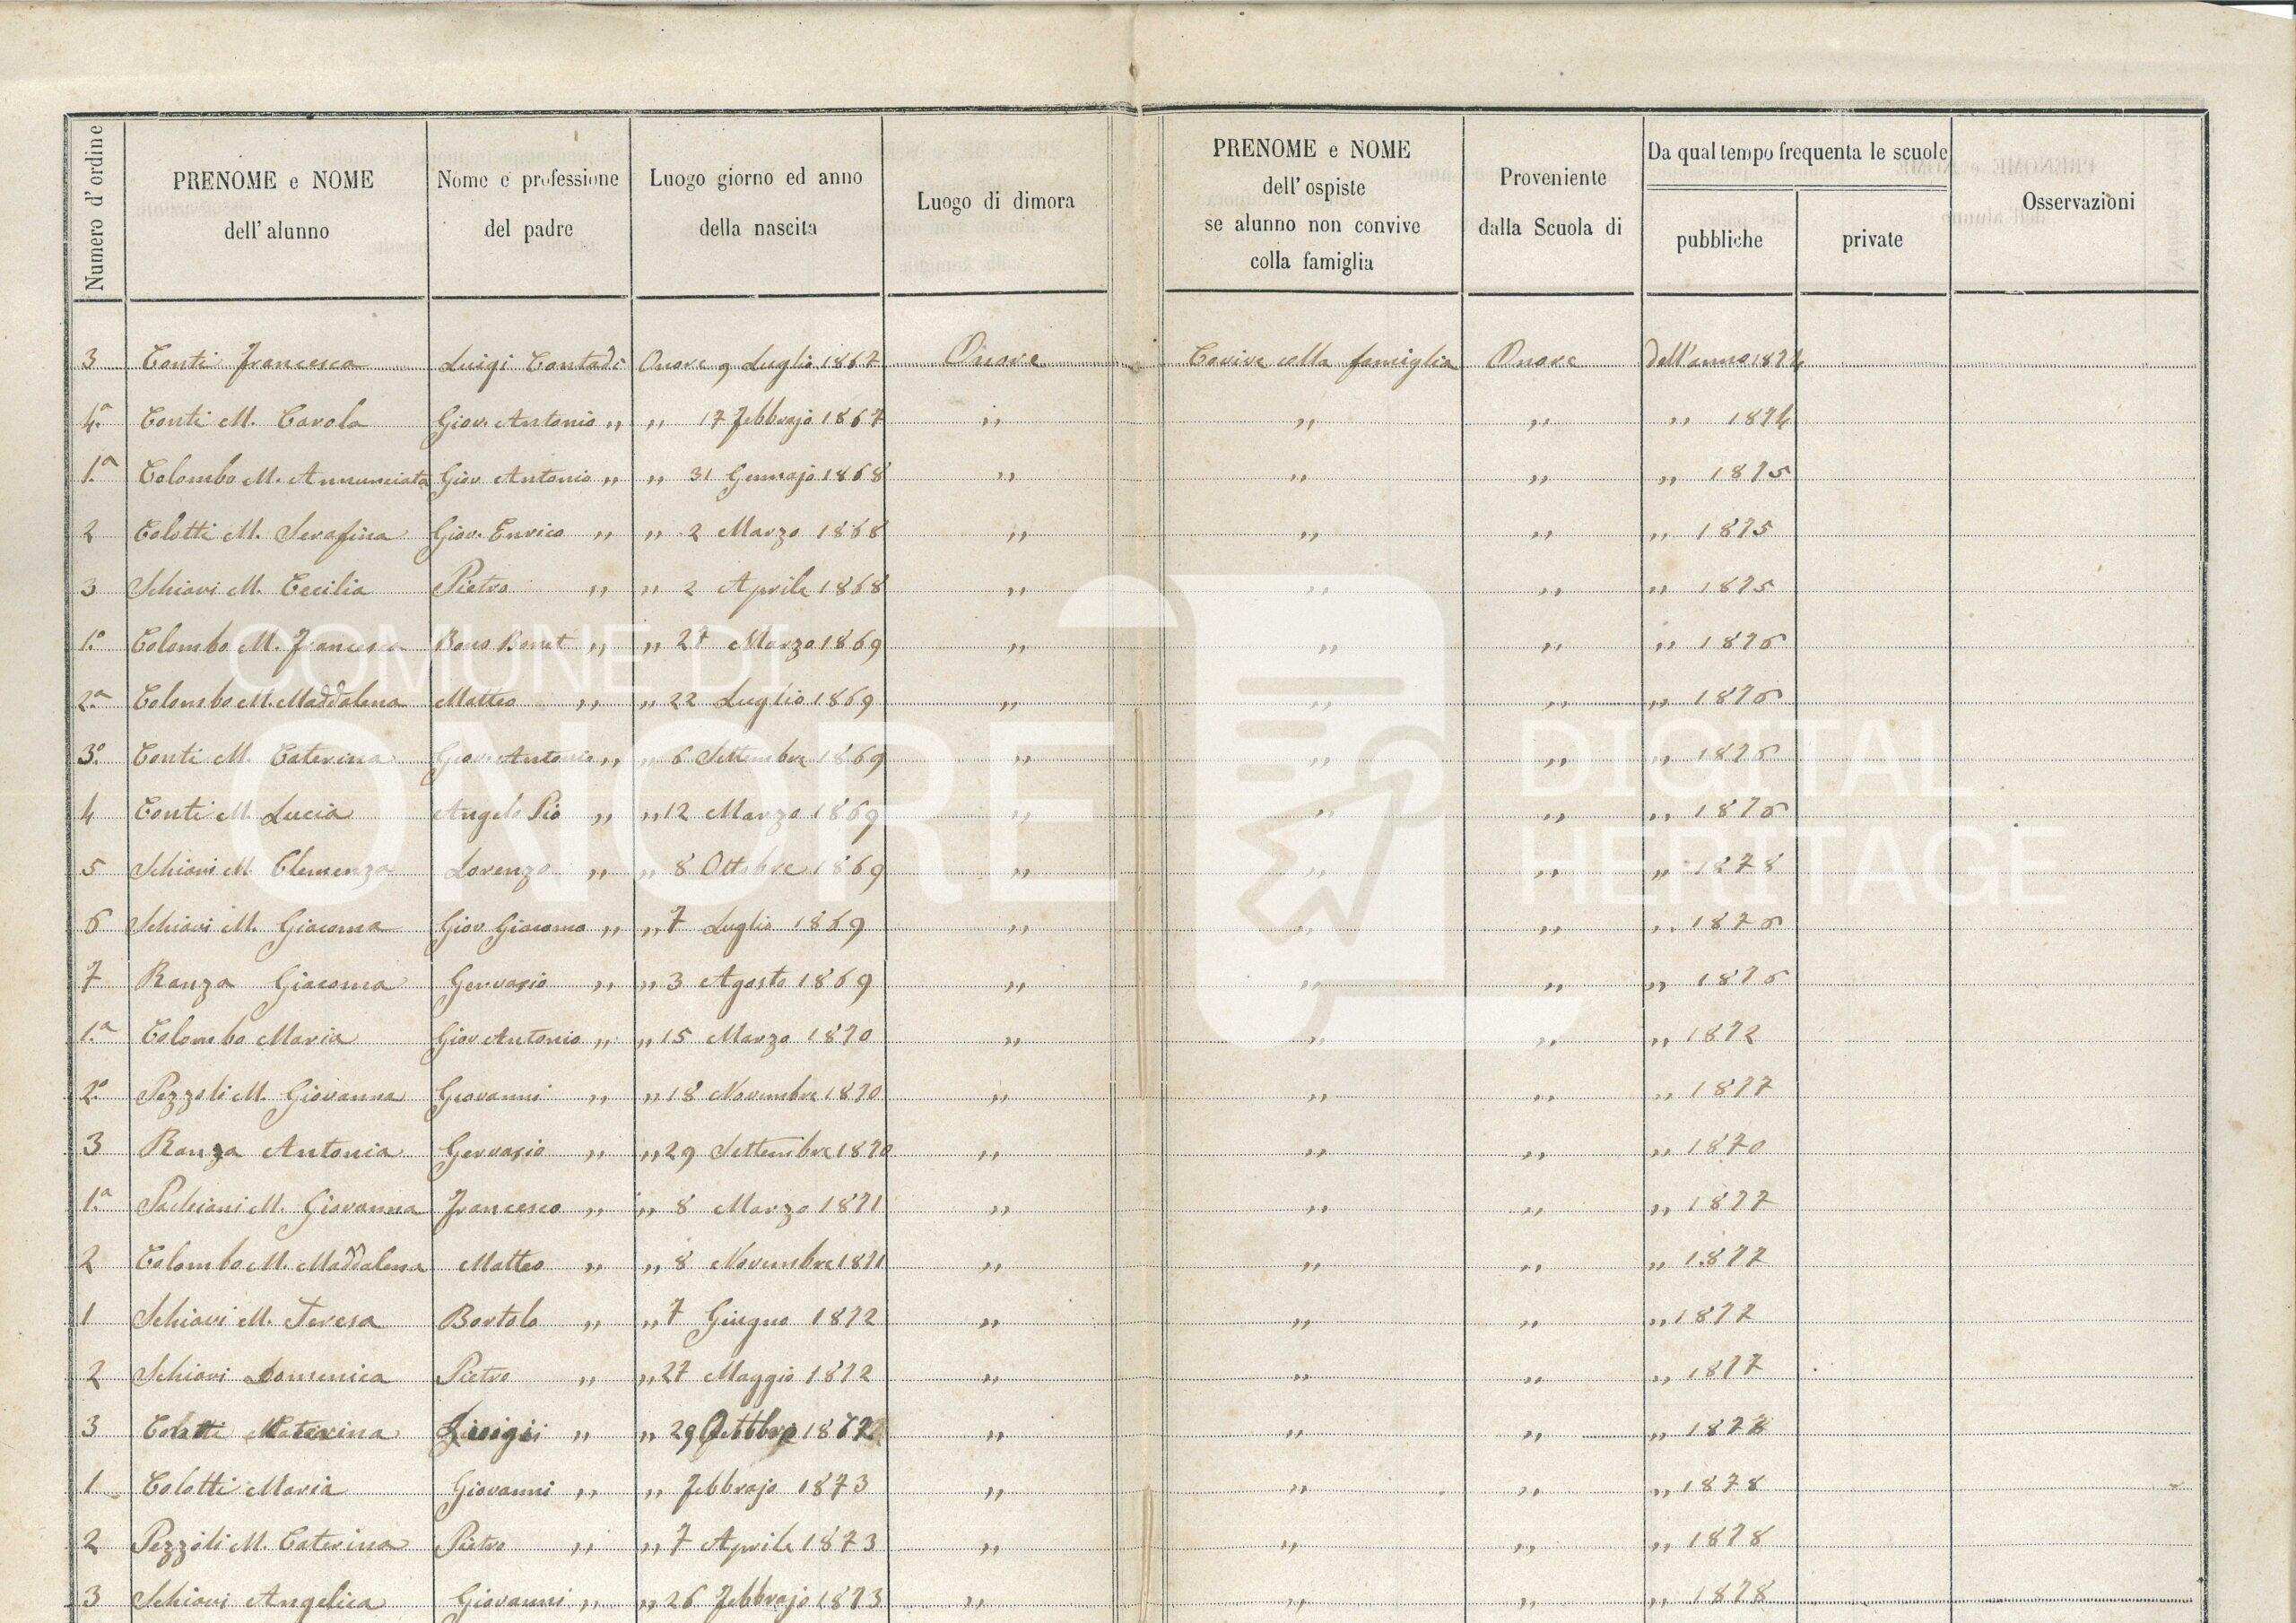 Numero d'ordine
PRENOME e NOME dell'alunno
Nome e professione del padre
Luogo giorno ed anno della nascita
Luogo di dimora
PRENOME e NOME dell'ospiste se alunno non convive colla famiglia
Proveniente dalla Scuola di
Da qual tempo frequenta le scuole
pubbliche
private
Osservazioni
3 Conti Francesca Luigi Contadi Onore 9 Luglio 1867 Onore Covive colla famiglia Onore Dell'anno 1874
4.a Conti M. Carola Giov. Antonio " " 17 Febbrajo 1867 " " " " 1874
1.a Colombo M. Annunciata Giov Antonio " " 31 Gennajo 1868 " " " " 1875
2 Colotti M. Serafina Giov. Enrico " " 2 Marzo 1868 " " " " 1875
3 Schiavi M. Cecilia Pietro " " 2 Aprile 1868 " " " " 1875
1.o Colombo M. Francesca " " 27 Marzo 1869 " " " " 1876
2.a Colombo M. Maddalena Matteo " " 22 Luglio 1869 " " " " 1876
3.o Conti M. Caterina Giov. Antonio " " 6 Settembre 1869 " " " " 1876
4 Conti M. Lucia Angelo Pio " " 12 Marzo 1869 " " " " 1876
5 Schiavi M. Clemenza Lorenzo " " 8 Ottobre 1869 " " " " 1878
6 Schiavi M. Giacoma Giov Giacomo " " 7 Luglio 1869 " " " " 1876
7 Ranza Giacoma Gervasio " " 3 Agosto 1869 " " " " 1876
1.a Colombo Maria Giov Antonio " " 15 Marzo 1870 " " " " 1872
2.o Pezzoli M. Giovanna Giovanni " " 18 Novembre 1870 " " " " 1877
3 Ranza Antonia Gervasio " " 29 Settembre 1870 " " " " 1870
1.a M. Giovanna Francesco " " 8 Marzo 1871 " " " " 1877
2 Colombo M. Maddalena Matteo " " 8 Novembre 1871 " " " " 1877
1 Schiavi M. Teresa Bortolo " " 7 Giugno 1872 " " " " 1877
2 Schiavi Domenica Pietro " " 27 Maggio 1872 " " " " 1877
3 Colotti Caterina Luigi " " 29 1872 " " " " 1878
1 Colotti Maria Giovanni " " Febbrajo 1873 " " " " 1878
2 Pezzoli M. Caterina Pietro " " 7 Aprile 1873 " " " " 1878
3 Schiavi Angelica Giovanni " " 26 Febbrajo 1873 " " " " 1878
COMUNE DI
ONORE
DIGITAL
HERITAGE